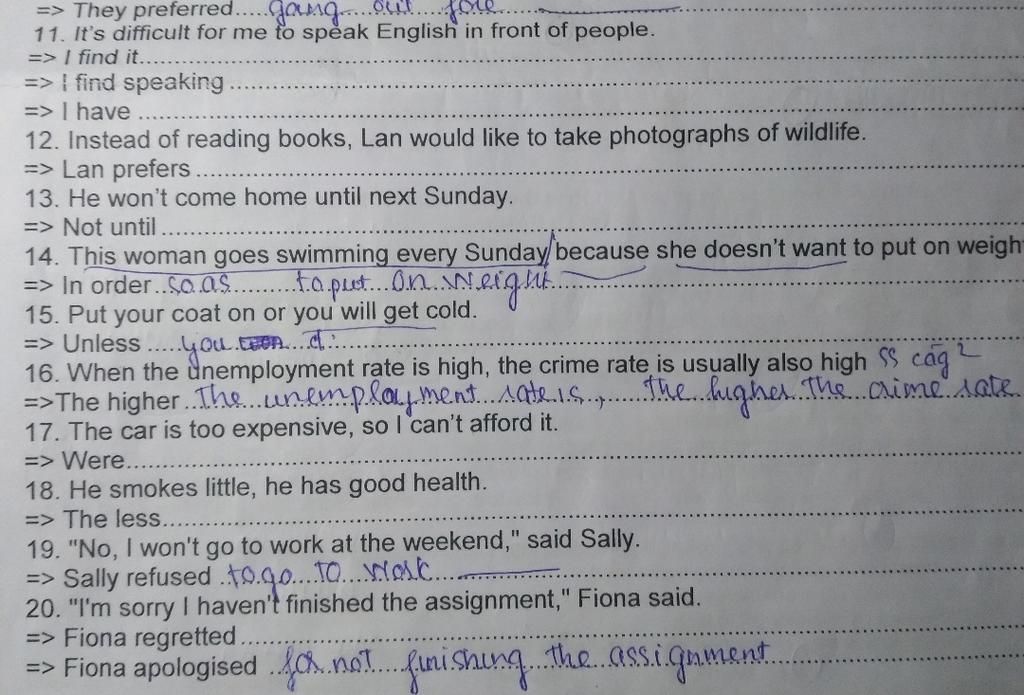 => They preferred.....going out for
11. It's difficult for me to speak English in front of people.
=> I find it.......................................................
=> I find speaking .......................................................
=> I have .......................................................
12. Instead of reading books, Lan would like to take photographs of wildlife.
=> Lan prefers .......................................................
13. He won't come home until next Sunday.
=> Not until .......................................................
14. This woman goes swimming every Sunday/because she doesn't want to put on weigh
=> In order so as to put on weight
15. Put your coat on or you will get cold.
=> Unless ..... you
16. When the unemployment rate is high, the crime rate is usually also high SS
=>The higher The unemployment rate is, the higher The crime rate
17. The car is too expensive, so I can't afford it.
=> Were.......................................................
18. He smokes little, he has good health.
=> The less.......................................................
19. "No, I won't go to work at the weekend," said Sally.
=> Sally refused to go To work
20. "I'm sorry I haven't finished the assignment," Fiona said.
=> Fiona regretted .......................................................
=> Fiona apologised for not finishing the assignment